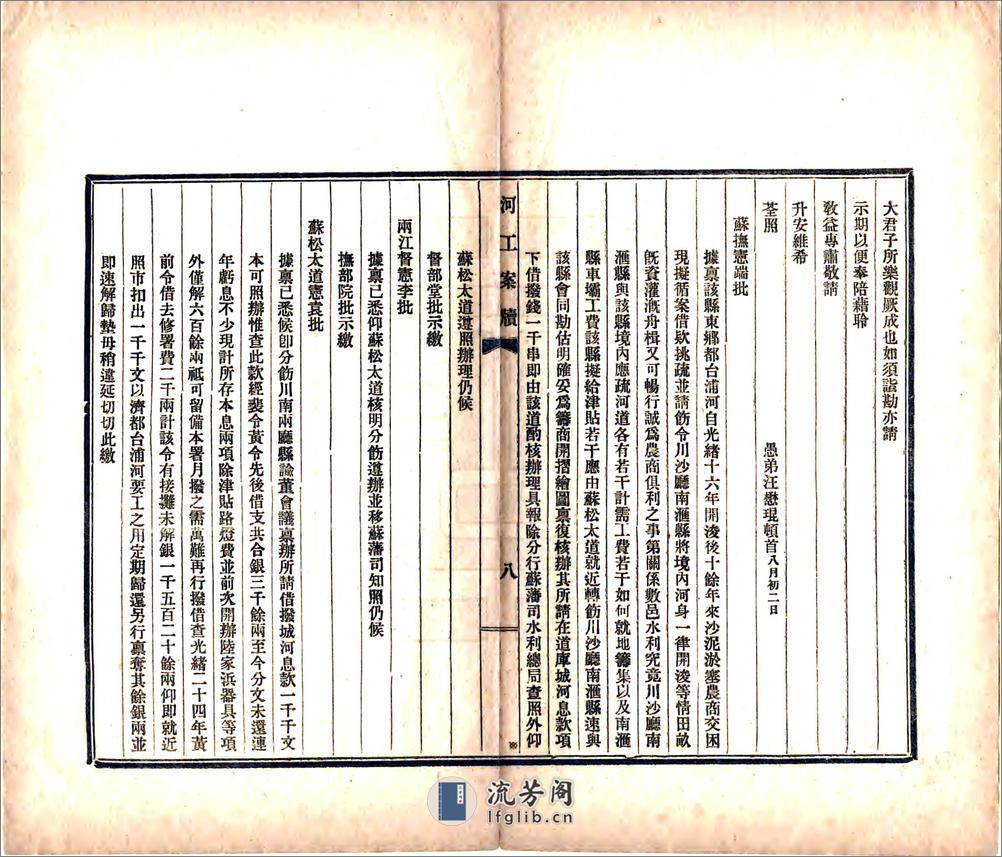 大君子所樂觀厥成也如須詣勘亦請
示期以便奉陪藉聆
敎益專肅敬請
升安維希
荃照　愚弟汪懋琨頓首八月初二日
蘇撫憲端批
據稟該縣東鄕都台浦河自光緒十六年開浚後十餘年來沙泥淤塞農商交困
現擬循案借欵挑疏並請飭令川沙廳南滙縣將境內河身一律開浚等情田畝
旣資灌漑舟楫又可暢行誠爲農商俱利之事第關係數邑水利究竟川沙廳南
滙縣與該縣境內應疏河道各有若干計需工費若干如何就地籌集以及南滙
縣車壩工費該縣擬給津貼若干應由蘇松太道就近轉飭川沙廳南滙縣速與
該縣會同勘估明確妥爲籌商開摺繪圖稟復核辦其所請在道庫城河息款項
下借撥錢一千串即由該道酌核辦理具報除分行蘇藩司水利總局查照外仰
河工案牘　八
蘇松太道遵照辦理仍候
督部堂批示繳
兩江督憲李批
據稟已悉仰蘇松太道核明分飭遵辦並移蘇藩司知照仍候
撫部院批示繳
蘇松太道憲袁批
據稟已悉候卽分飭川南兩廳縣諭董會議稟辦所請借撥城河息款一千千文
本可照辦惟查此款經裴令黃令先後借支共合銀三千餘兩至今分文未還連
年虧息不少現計所存本息兩項除津貼路燈費並前次開辦陸家浜器具等項
外僅解六百餘兩祗可留備本署月撥之需萬難再行撥借查光緒二十四年黃
前令借去修署費二千兩計該令有接攤未解銀一千五百二十餘兩仰即就近
照市扣出一千千文以濟都台浦河要工之用定期歸還另行稟奪其餘銀兩並
即速解歸墊毋稍違延切切此繳
流芳阁
lfglib.cn